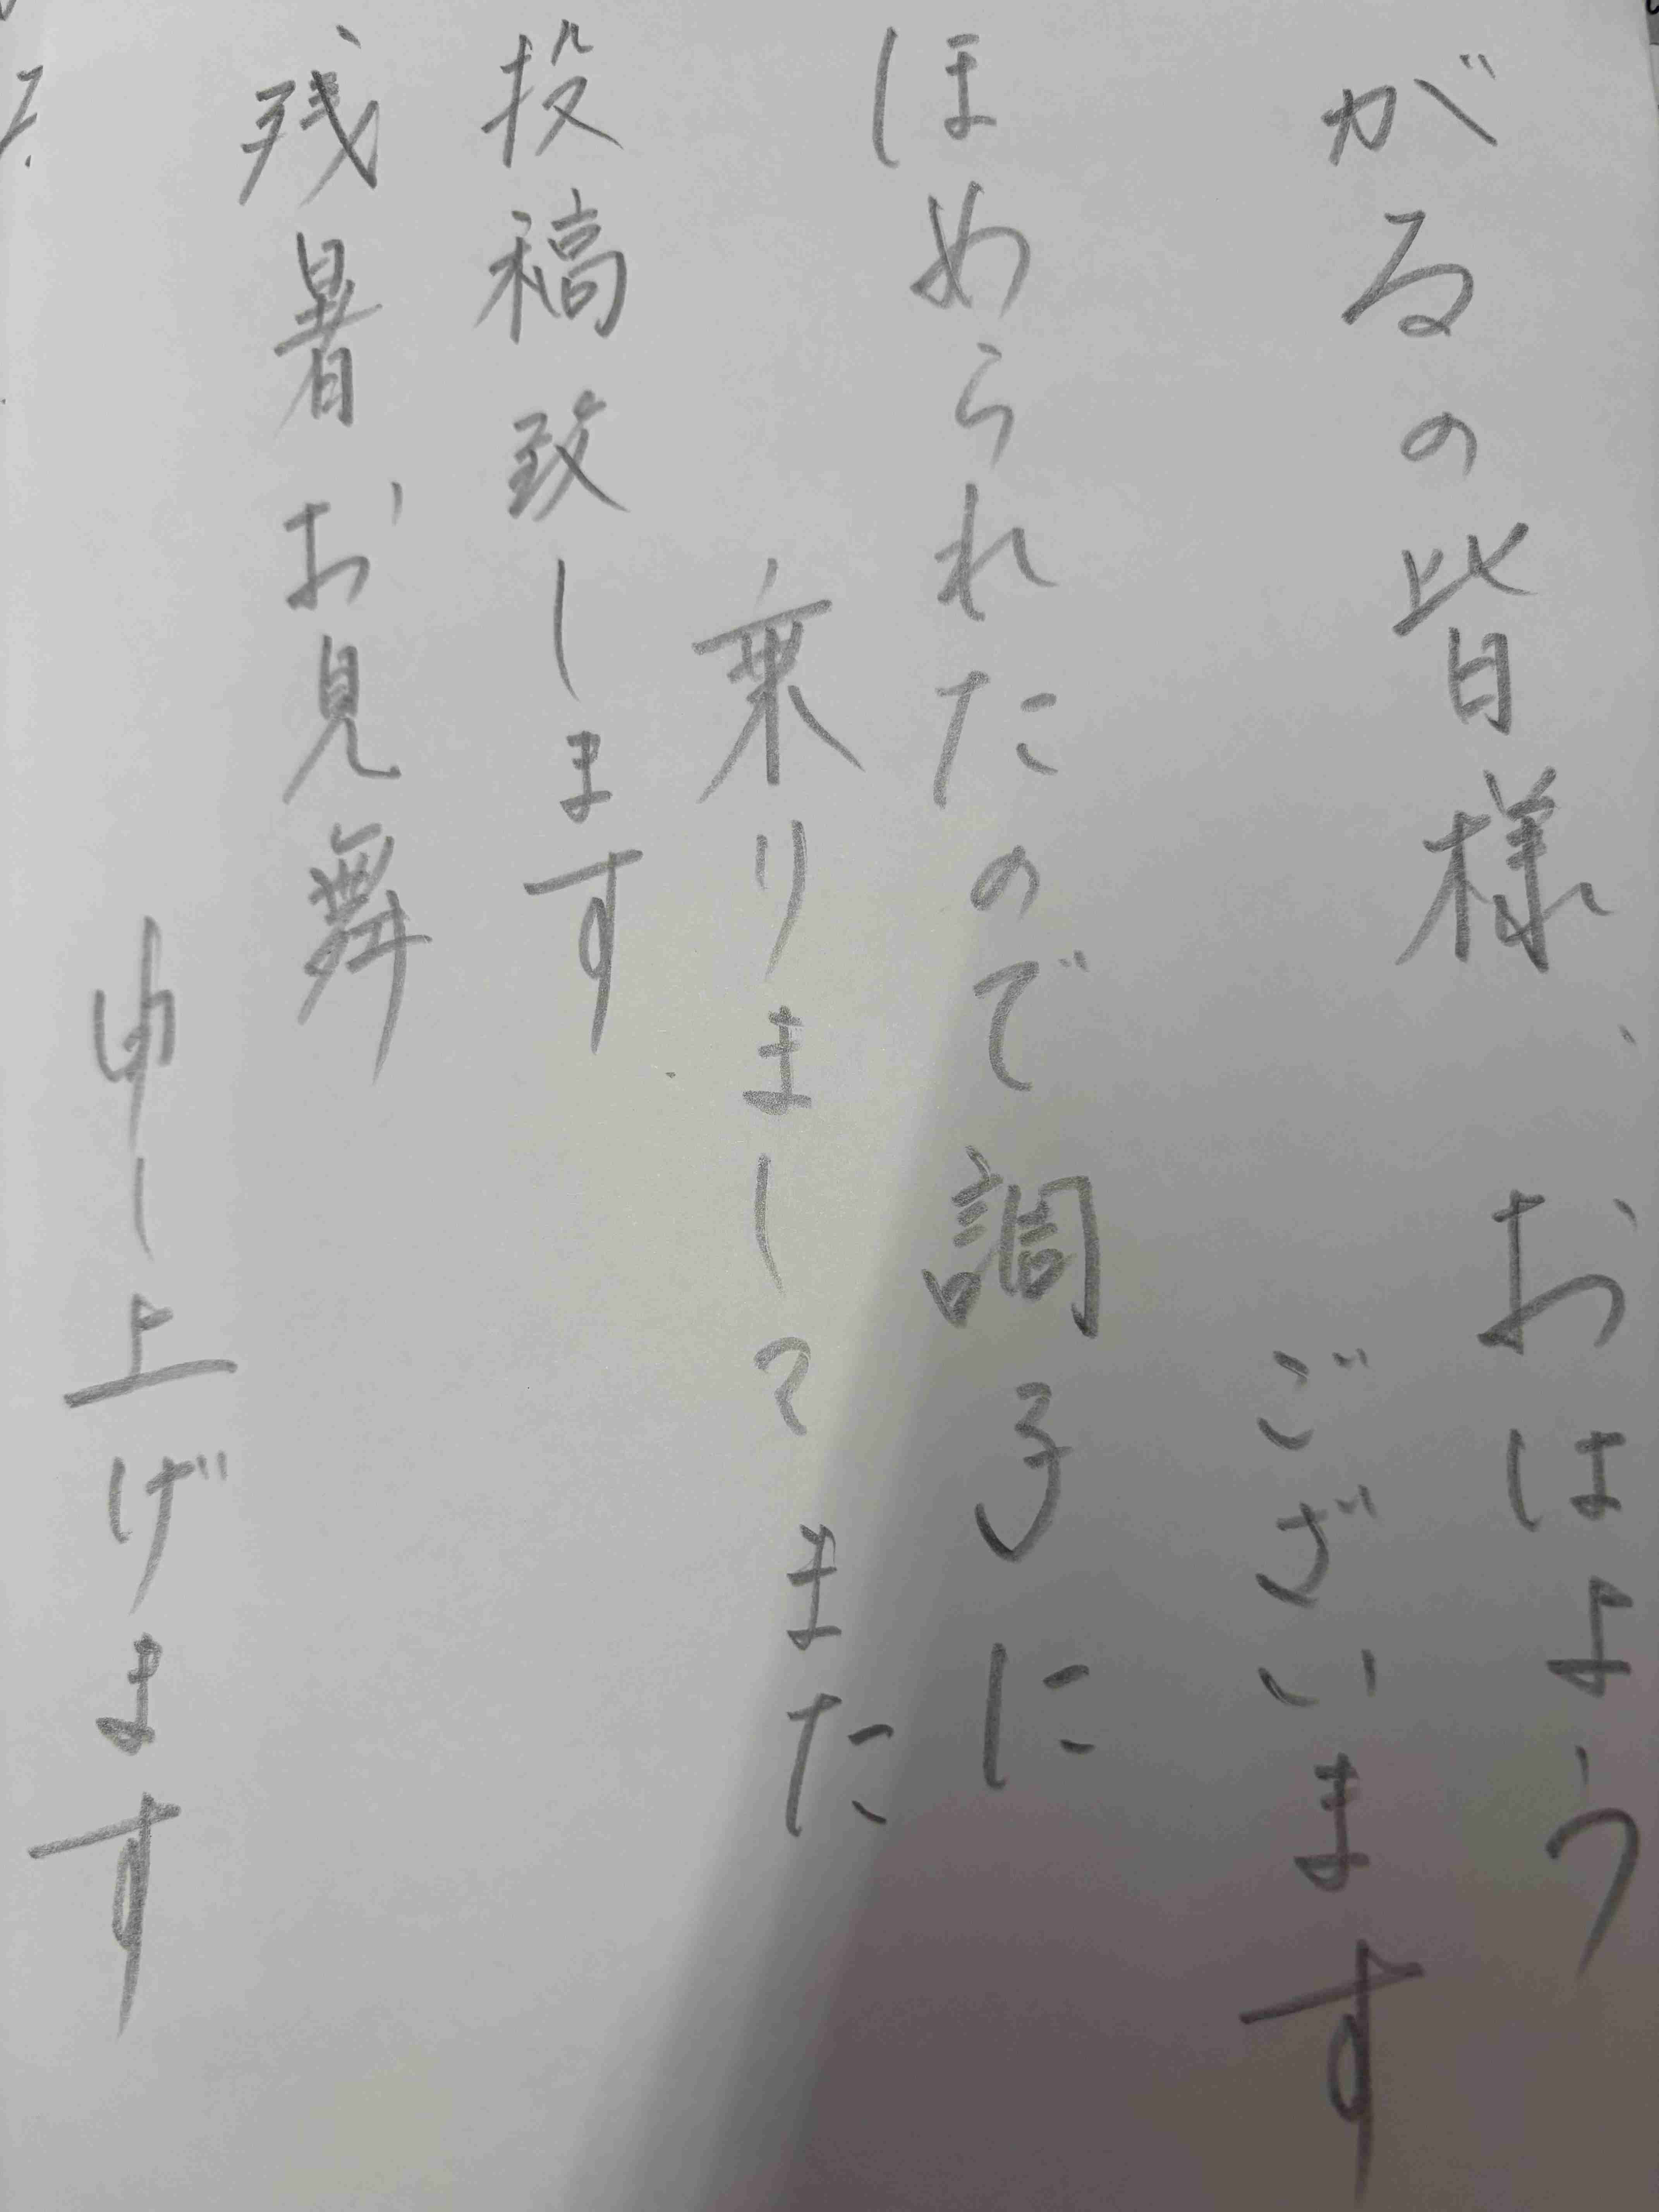 がるの皆様、おはよう
ございます
ほめられたので調子に
乗りましてまた
投稿致します
残暑お見舞
申し上げます